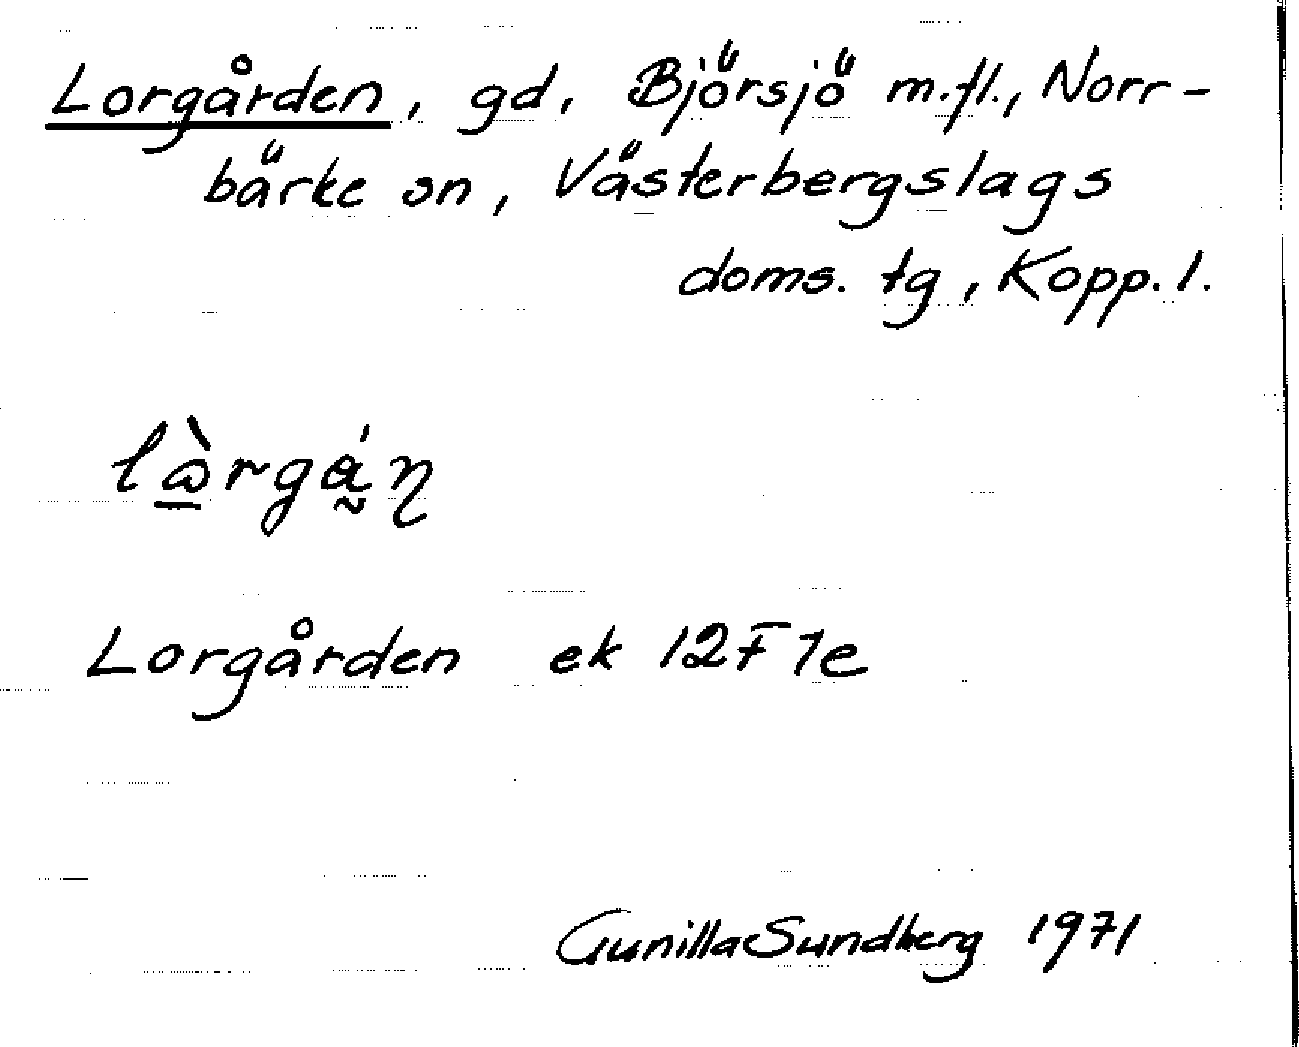 Lorgården, gd, Björsjö m.fl., Norr-
bärke sn, Västerbergslags
doms. tg, Kopp. l.
Lorgården ek 12F1e
Gunilla Sundberg 1971